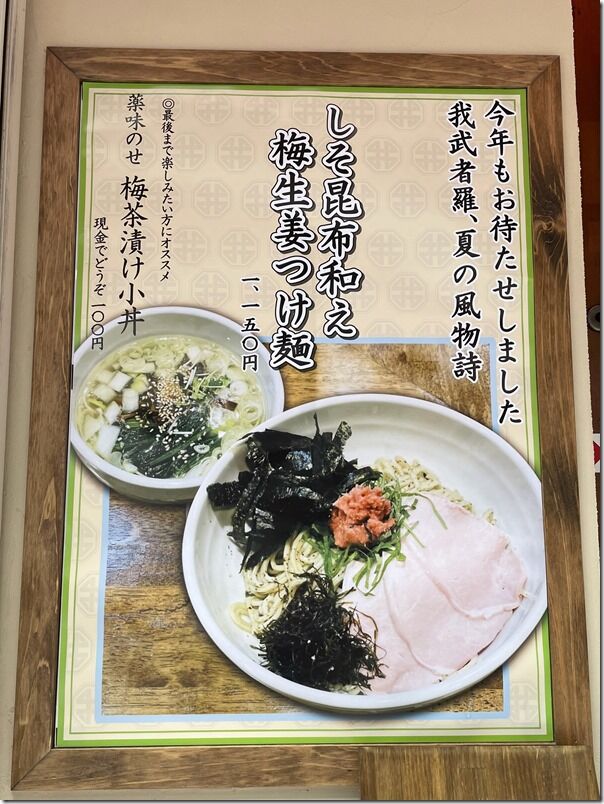 今年もお待たせしました
我武者羅、夏の風物詩
しそ昆布和え
梅生姜つけ麺
一、一五〇円
◎最後まで楽しみたい方にオススメ
薬味のせ 梅茶漬け小丼
現金でどうぞ 一〇〇円